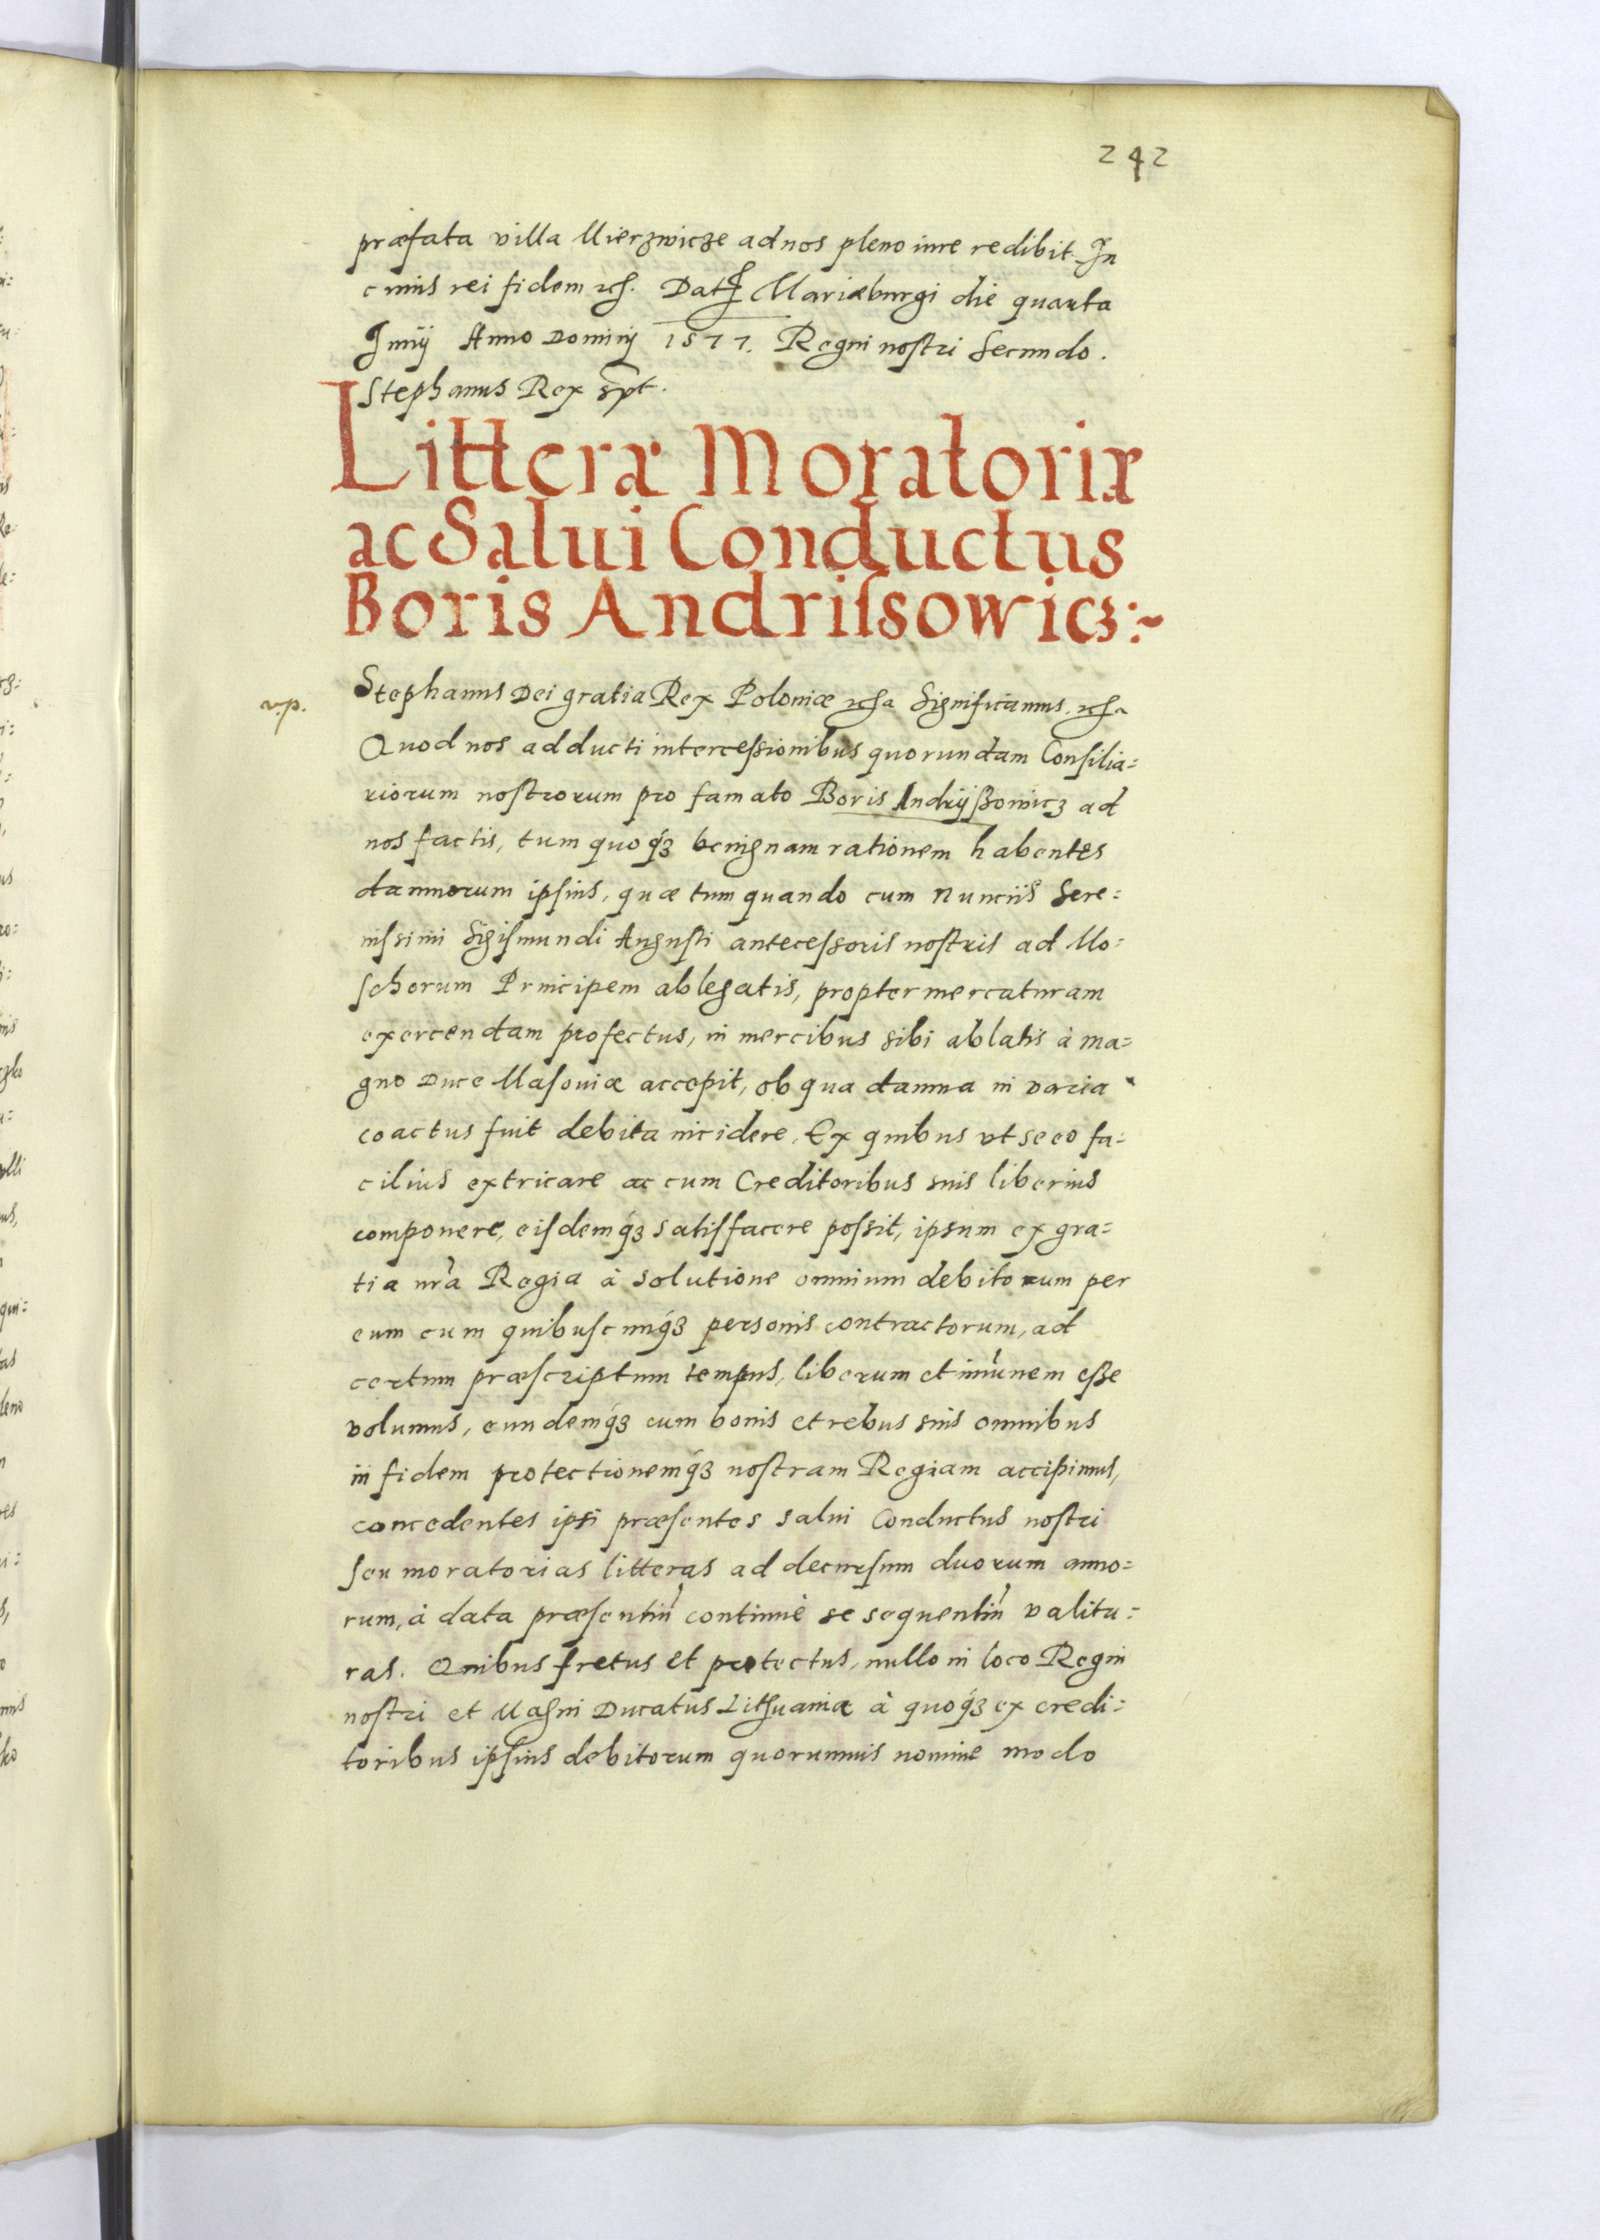 242
præfata villa Mierzwicze ad nos pleno iure redibit. In
cuius rei fidem etc. Dat Mariæburgi die quarta
Junij Anno Dominj 1577. Regni nostri Secundo.
Stephanus Rex spt.
Litteræ Moratoriæ
ac Salui Conductus
Boris Andrissowicz:~
v.p.
Stephanus Dei gratia Rex Poloniæ etc Significamus. etc
Quod nos adducti intercessionibus quorundam Consilia:
riorum nostrorum pro famato Boris Andrijßowicz ad
nos factis, tum quoq́z benignam rationem habentes
damnorum ipsius, quæ tum quando cum Nuncijs Sere:
nissimi Sigismundi Augusti antecessoris nostris ad Mo:
schorum Principem ablegatis, propter mercaturam
exercendam profectus, in mercibus sibi ablatis à ma:
gno Duce Masouiæ accepit, ob qua damna in varia
coactus fuit debita incidere. Ex quibus vt se eo fa:
cilius extricare ac cum Creditoribus suis liberius
componere, eisdemq́z satisfacere possit, ipsum ex gra:
tia nr̃a Regia à solutione omnium debitorum per
eum cum quibuscunq́z personis contractorum, ad
certum præscriptum tempus, liberum et im̃unem esse
volumus, eundemq́z cum bonis et rebus suis omnibus
in fidem protectionemq́z nostram Regiam accipimus,
concedentes ipsi præsentes salui Conductus nostri
seu moratorias litteras ad decursum duorum anno:
rum, à data præsentiũ continuè se sequentiũ valitu:
ras. Quibus fretus et protectus, nullo in loco Regni
nostri et Magni Ducatus Lithuaniæ à quoq́z ex credi:
toribus ipsius debitorum quorumuis nomine modo